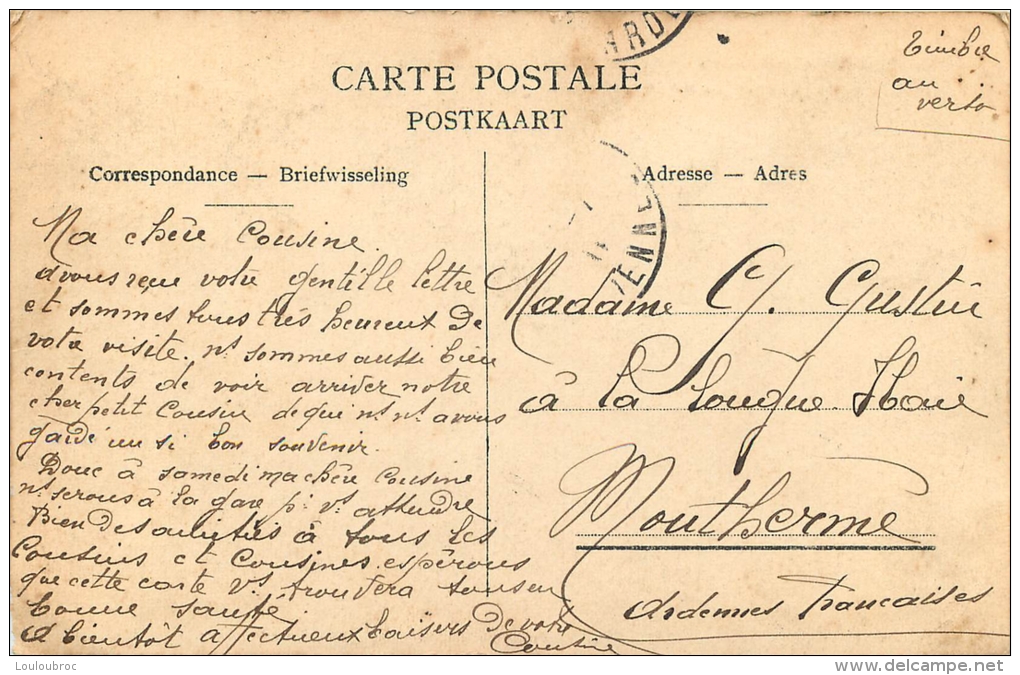 CARTE POSTALE
POSTKAART
Timbre
au
verso
Correspondance — Briefwisseling
Adresse — Adres
Ma chère Cousine
avons reçue votre gentille lettre
et sommes tous très heureux de
votre visite. ns sommes aussi bien
contents de voir arriver notre
cher petit Cousin de qui ns ns avons
gardé un si bon souvenir.
Donc à samedi ma chère Cousine
ns serons à la gare pr vs attendre
Bien des amitiés à tous les
Cousins et Cousines espérons
que cette carte vs trouvera tous en
bonne santé
A bientôt affectueux baisers de votre
Cousine
Madame G. Gustin
à la longue Haie
Monthermé
Ardennes Françaises
ARDE
ENNE
Louloubroc
www.delcampe.net